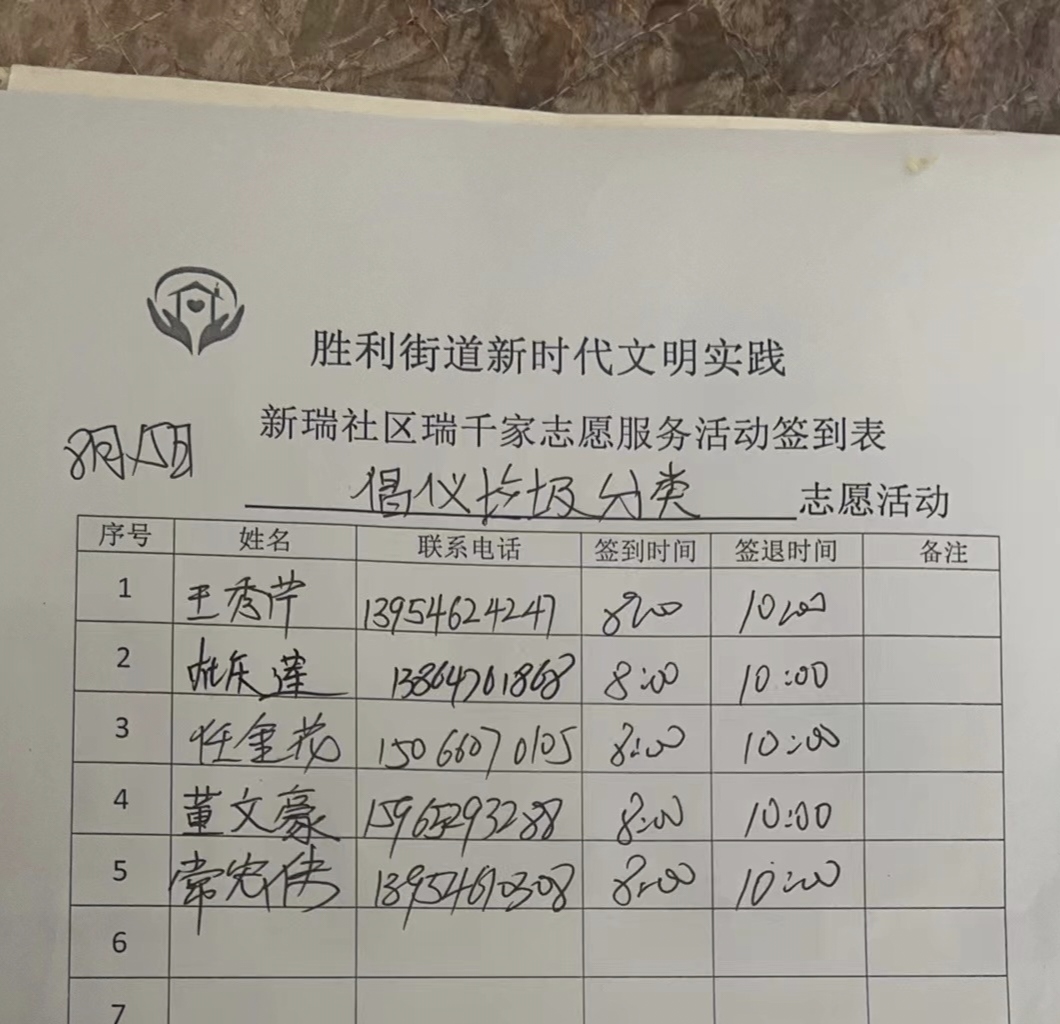 胜利街道新时代文明实践
新瑞社区瑞千家志愿服务活动签到表
8月15日
倡仪垃圾分类志愿活动
序号 姓名 联系电话 签到时间 签退时间 备注
1 王秀芹 13954624247 8:00 10:00
2 庆莲 13864701868 8:00 10:00
3 任金花 15066070105 8:00 10:00
4 董文豪 15965293288 8:00 10:00
5 常忠侠 13954610308 8:00 10:00
6
7